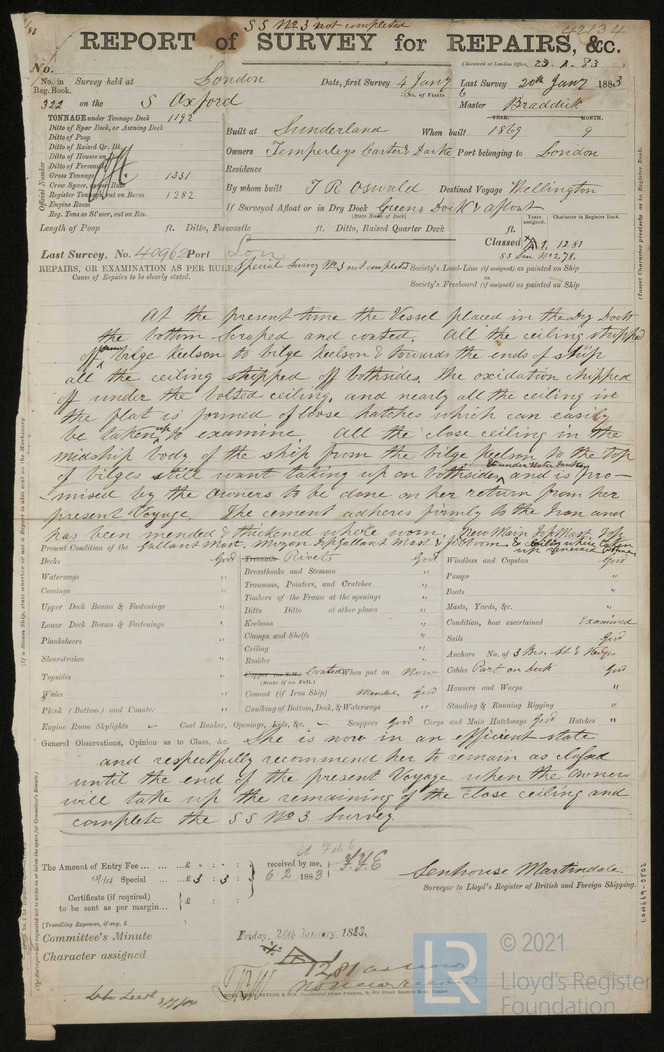 S S No 3 not completed
42134
REPORT of SURVEY for REPAIRS, &c.
(Received at London Office, 23. 1. 83)
No.
No. in Reg. Book.
Survey held at London
Date, first Survey 4 Jany
Last Survey 20th Jany 1883
(No. of Visits 6
322 on the S Oxford
Master Braddick
TONNAGE under Tonnage Deck 1192
Ditto of Spar Deck, or Awning Deck
Ditto of Poop
Ditto of Raised Qr. Dk.
Ditto of Houses on
Ditto of Forecastle
Gross Tonnage 1331
Crew Space,
Register Tonnage, cut on Beam 1282
Engine Room
Reg. Tons as St'mer, cut on Bm.
Official Number
Built at Sunderland When built 1869 9
YEAR. MONTH.
Owners Temperleys Carter & Darke Port belonging to London
Residence
By whom built T R Oswald Destined Voyage Wellington
If Surveyed Afloat or in Dry Dock Greens Dock & afloat
(State Name of Dock)
Length of Poop ft. Ditto, Forecastle ft. Ditto, Raised Quarter Deck ft.
Years assigned. Character in Register Book.
Classed A 1. 12 81
SS Lon No 2 78.
Last Survey, No. 40962 Port Lon
REPAIRS, OR EXAMINATION AS PER RULE, Special Survey No 3 not completed
Cause of Repairs to be clearly stated.
Society's Load-Line (if assigned) as painted on Ship
Society's Freeboard (if assigned) as painted on Ship
At the present time the Vessel placed in the Dry Dock
the bottom Scraped and coated. All the ceiling stripped
off from bilge keelson to bilge keelson & towards the ends of ship
all the ceiling stripped off bothsides, the oxidation chipped
off under the bolted ceiling, and nearly all the ceiling in
the flat is formed of loose hatches which can easily
be taken up to examine. All the close ceiling in the
midship body of the ship from the bilge keelson to the top
of bilges still want taking up on bothsides and is pro-
mised by the owners to be done on her return from her
present Voyage. The cement adheres firmly to the Iron and
has been mended & thickened where worn. New Main TopMast, Top
gallant Mast. Mizen Topgallant Mast & JibBoom.
Present Condition of the
Decks Good
Waterways "
Comings "
Upper Deck Beams & Fastenings "
Lower Deck Beams & Fastenings "
Planksheers "
Sheerstrakes "
Topsides "
Wales "
Plank (Bottom) and Counter "
Treenails Rivets Good
Breasthooks and Stemson "
Transoms, Pointers, and Crutches "
Timbers of the Frame at the openings "
Ditto Ditto at other places "
Keelsons "
Clamps and Shelfs "
Ceiling "
Rudder "
Copper Coated When put on Now
(State if on Felt.)
Cement (if Iron Ship) Mended Good
Caulking of Bottom, Deck, & Waterways "
Windlass and Capstan Good
Pumps "
Boats "
Masts, Yards, &c. "
Condition, how ascertained Examined
Sails Good
Anchors No. of 3 Brs. St & Kedge
Cables Part on deck Good
Hawsers and Warps "
Standing & Running Rigging "
Engine Room Skylights Coal Bunker, Openings, Lids, &c. Scuppers Good Cargo and Main Hatchways Good Hatches "
General Observations, Opinion as to Class, &c. She is now in an efficient state
and respectfully recommend her to remain as classed
until the end of the present Voyage when the Owners
will take up the remaining of the close ceiling and
complete the S S No 3 Survey.
The Amount of Entry Fee £ : :
Special £ 3 : 3 :
Certificate (if required) to be sent as per margin £ : :
received by me,
6 2 1883
(Travelling Expenses, if any, £
Senhouse Martindale
Surveyor to Lloyd's Register of British and Foreign Shipping.
Committee's Minute Friday, 26th January, 1883.
Character assigned
A 1 12 81 as now
LON669-0502
LR
© 2021
Lloyd's Register
Foundation